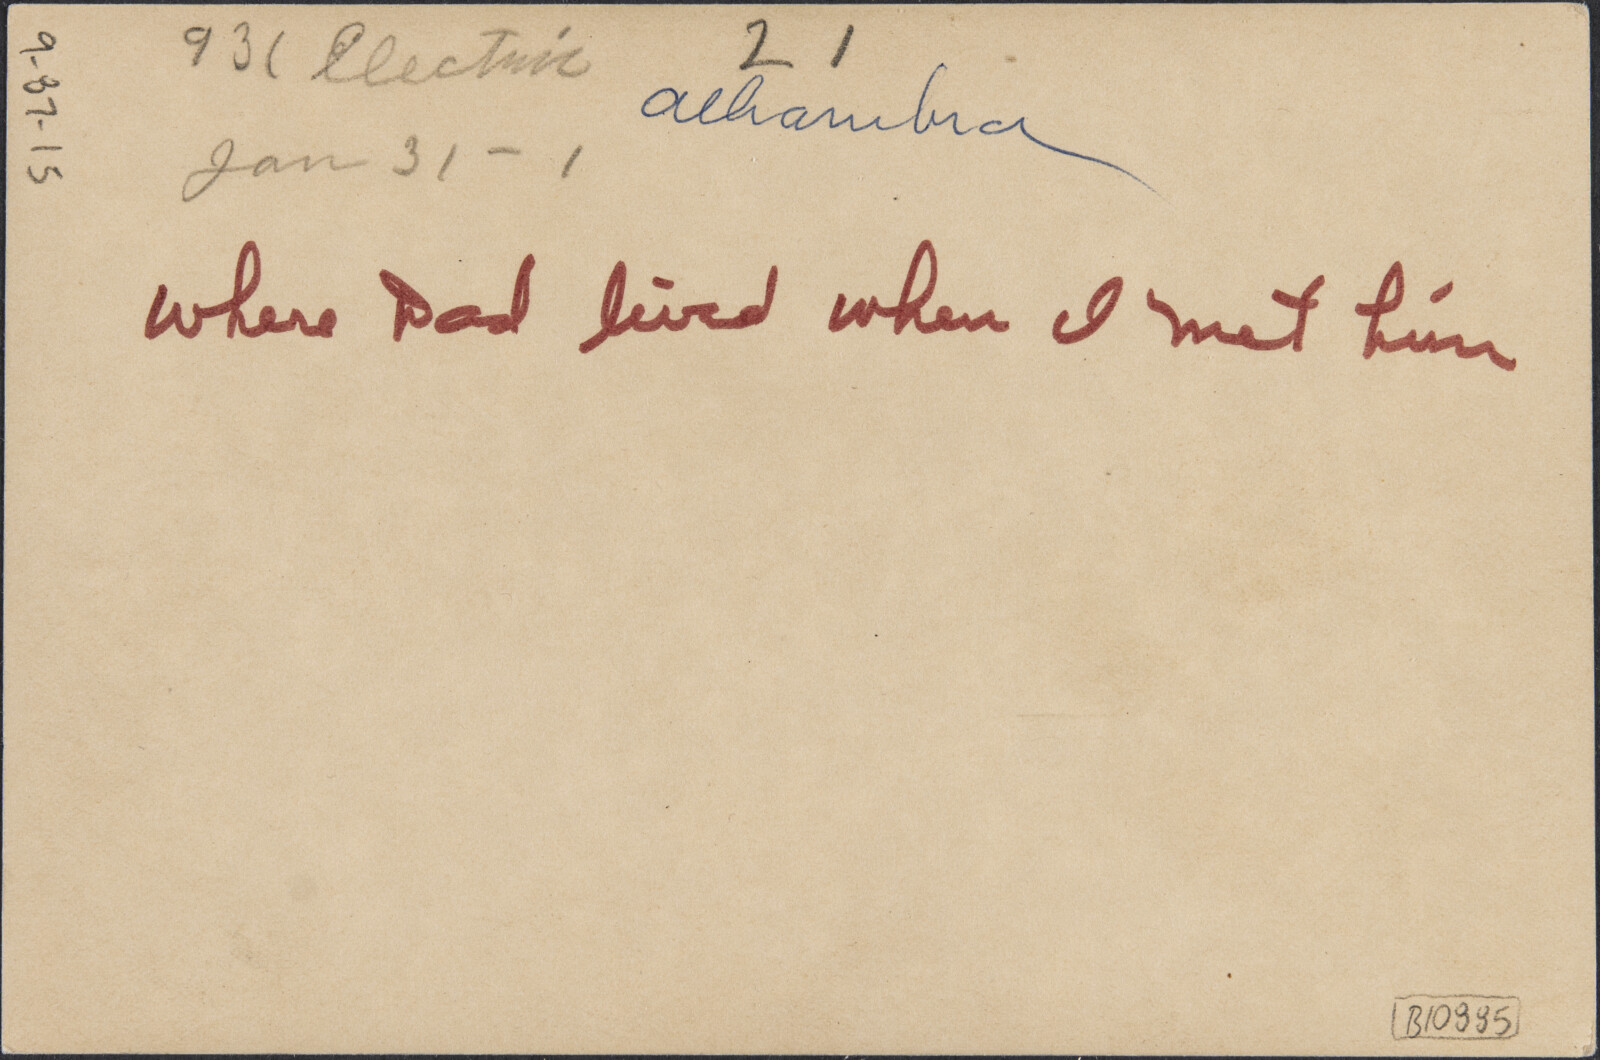 931 Electric 21
Alhambra
Jan 31 - 1
where Dad lived when I met him
9-87-15
B10995